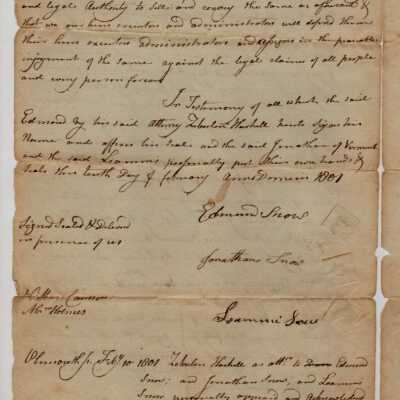 and legal Authority to Sell and convey the Same as aforesaid &
that we our heirs executors and administrators will defend them
their heirs executors administrators and assigns in the peaceable
injoyment of the same against the legal claims of all people
and every person forever
In Testimony of all which the said
Edmond by his said attorney Zebulon Haskell hereto signs his
Name and affixes his Seale and the said Jonathan of Vermont
and the said Loammi personally put their own hands &
seals this tenth Day of febuary Anno Domini 1801
Edmund Snow
Signed Sealed & Deliverd
in presence of us
Jonathan Snow
Abm Holmes
Loammi Snow
Plymouth Feby 10 1801 Zebulon Haskell as atty to Edmund
Snow, and Jonathan Snow, and Loammi
Snow personally appeared and Acknowledged